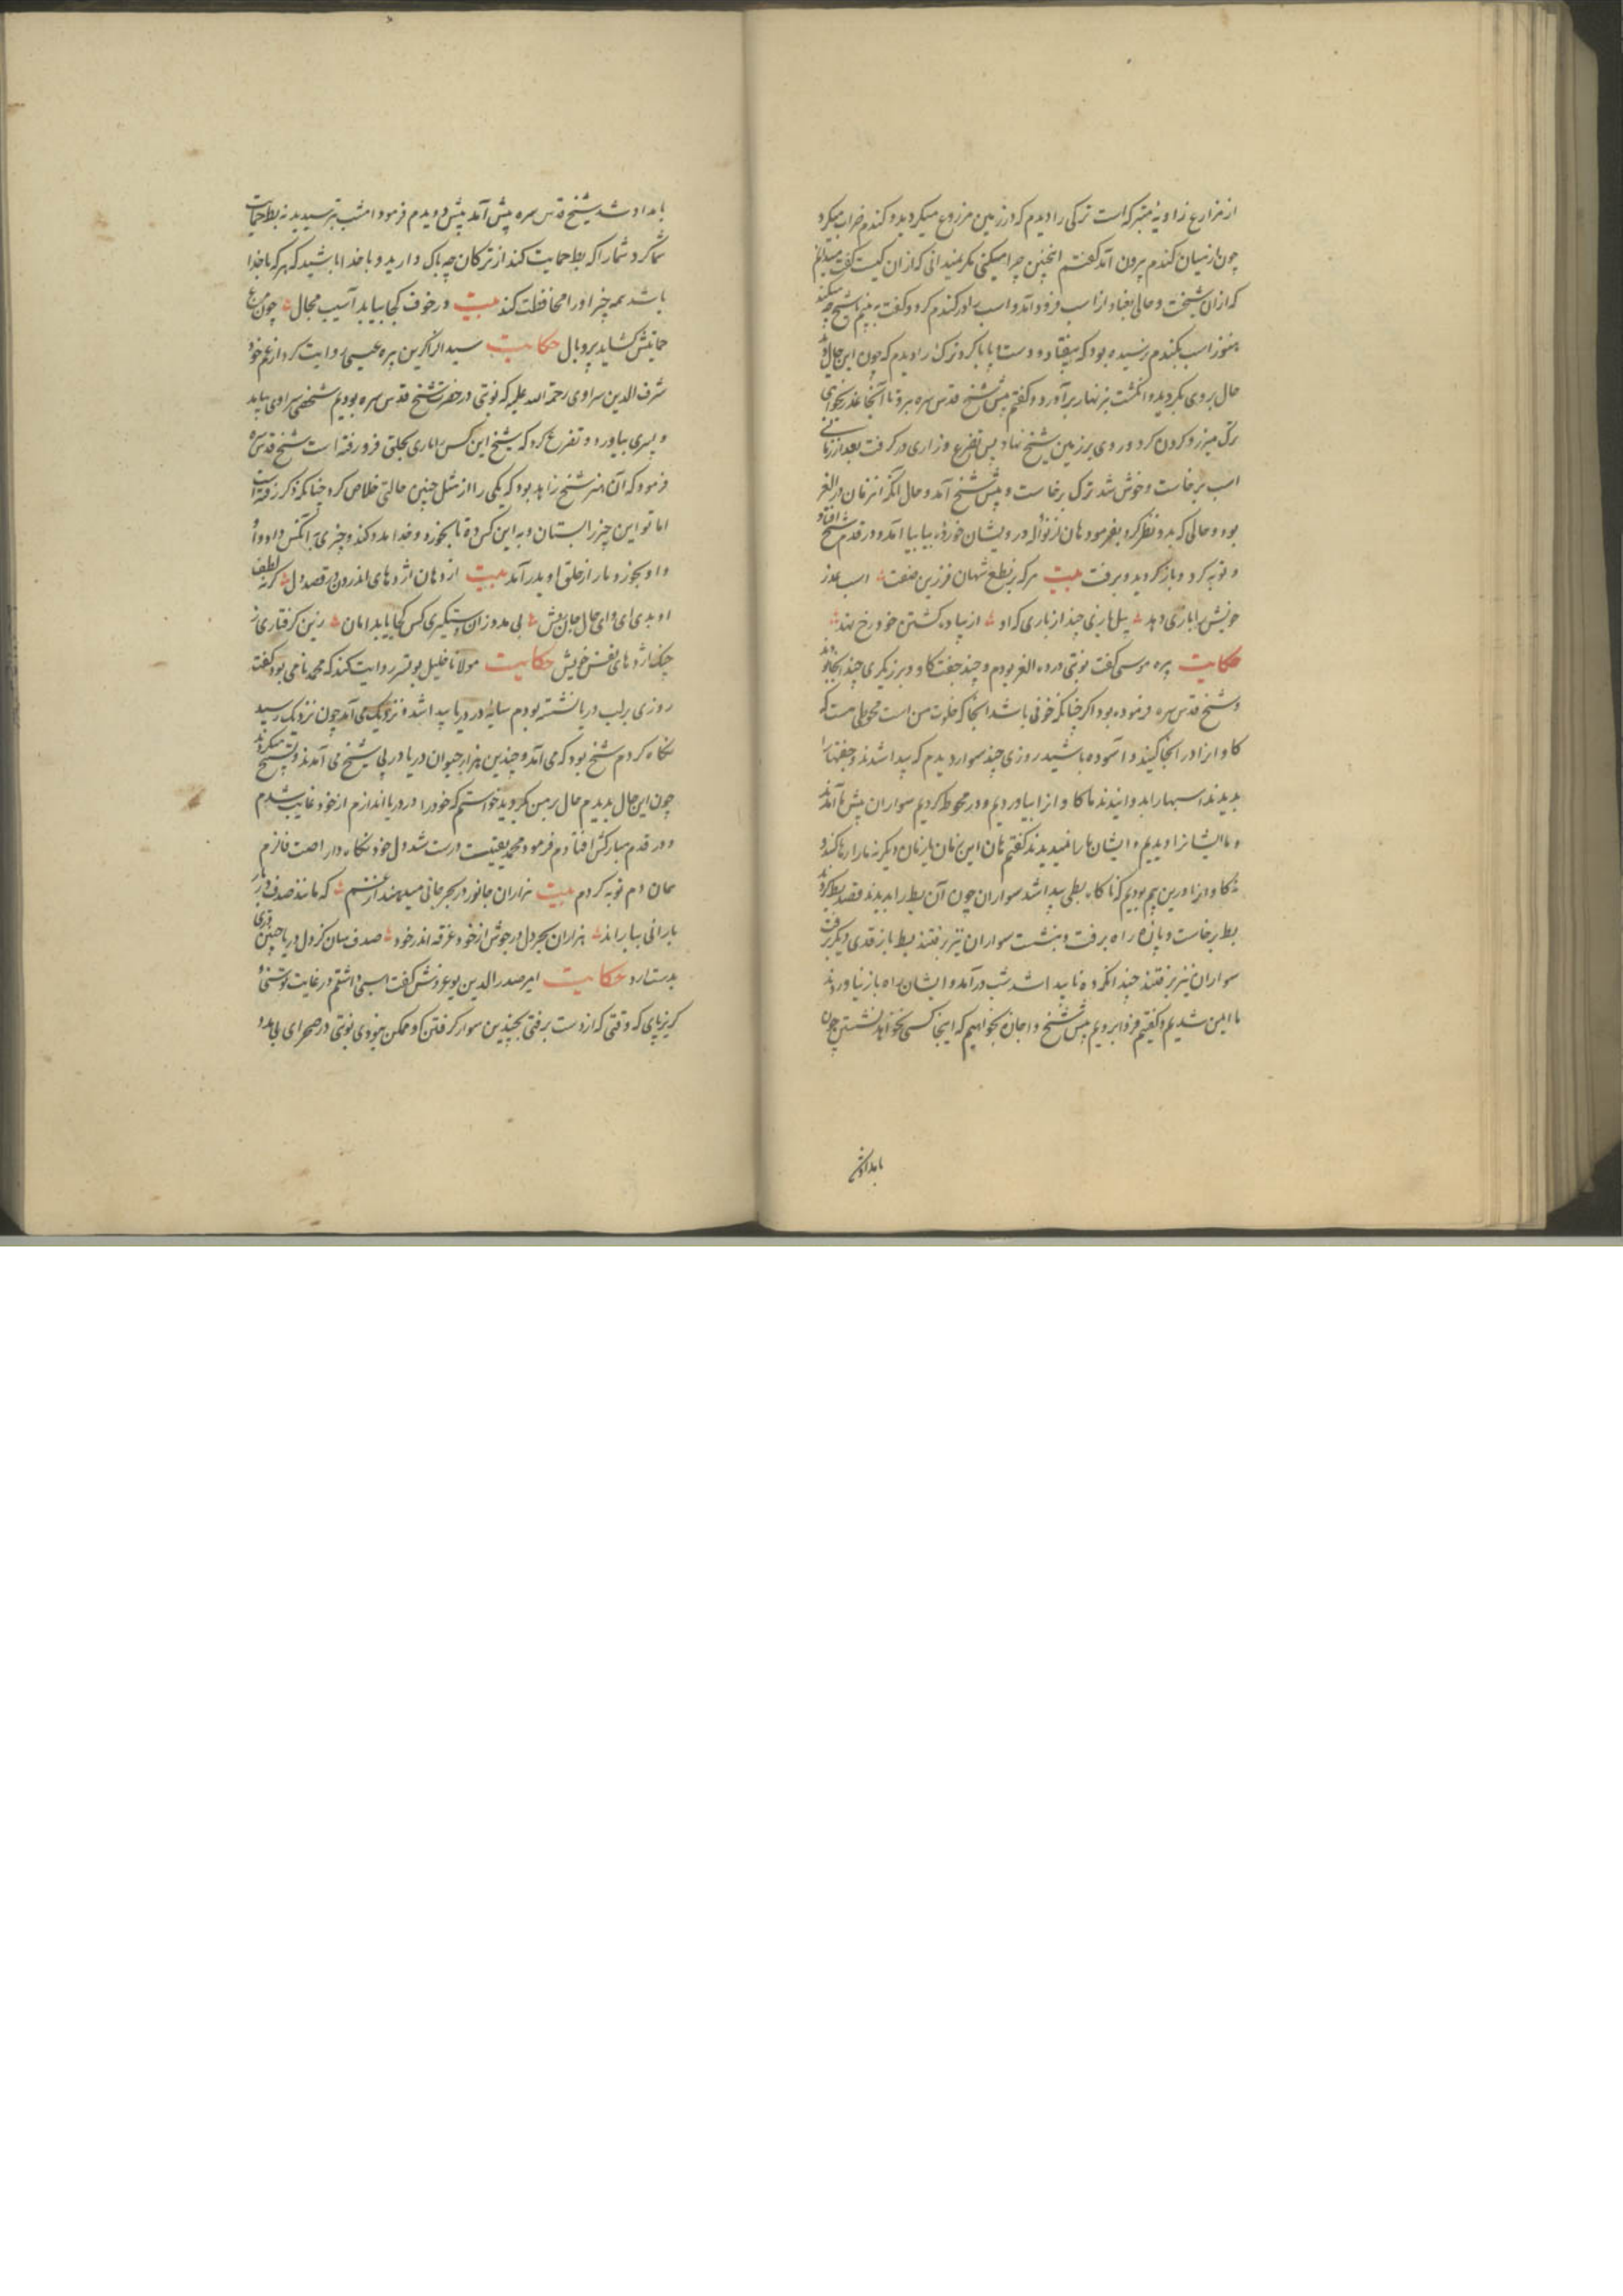 از مزارع زاویه متبرکه است ترکی را دیدم که در زمین مزروع میکردید و کندم خراب میکرد
چون از میان کندم بیرون آمد کفتم اینچنین چرا میکنی مکر نمیدانی که از ان کیست کفت میدانم
که از ان شیخست و حالی از اسب فرود آمد و اسب را در کندم کرد و کفت به بینم تا شیخ چه میکند
هنوز اسب بکندم نرسیده بود که بیفتاد و دست و پا باز کرد ترک را دیدم که چون این حال
حال بر وی بکردید و انکشت بزنهار برآورد و کفتم پیش شیخ قدس سره برو تا آنجا عذر بخواهی
ترک میزر در کردن کرد و روی بر زمین شیخ نهاد پس تضرع و زاری در کرفت بعد از زمانی
اسب برخاست و خوش شد ترک برخاست و پیش شیخ آمد و حال آنکه آن زمان در الغر
بود و حالی که بدو نظر کرد بفرمود هان از نواله درویشان خورده بیا بیا آمد و در قدم شیخ افتاد
و توبه کرد و باز کردید و برفت بیت هر که بر نطع شهان فرزین صفت اسب
خویش را بازی دهد پیل بازی چند از بازی که او از پیاده کشتن خود رخ نهد
حکایت پیره موسی کفت نوبتی در ده الغر بودم و چند جفت کاو و برزیکری چند آنجا بودند
و شیخ قدس سره فرموده بود اکر چنانکه خوفی باشد آنجا که خلوت من است محوطی هست که
کاوانرا در آنجا کنید و آسوده باشید روزی چند سوار دیدم که پیدا شدند و جفتها را
بدیدند اسبها را بدوانیدند ما کاوانرا بیاوردیم و در محوط کردیم سواران پیش ما آمدند
و ما ایشانرا دیدیم و ایشان ما را نمیدیدند کفتم هان این زمان یا زمان دیکر نه ما را رها کنند و
نه کاوانرا در این بیم بودیم که ناکاه بطی پیدا شد سواران چون آن بط را بدیدند قصد بط کردند
بط برخاست و پاره راه برفت و بنشست سواران نیز برفتند بط باز قدری دیکر برفت
سواران نیز برفتند چندانکه ده ناپیدا شد شب درآمد و ایشان راه باز نیاوردند
ما ایمن شدیم و کفتیم فردا برویم پیش شیخ و اجازه بخواهیم که اینجا کسی نخواهد نشستن چون
بامداد شد
بامداد شد شیخ قدس سره پیش آمد پیش دویدم فرمود امشب بترسیدید نه بط حمایت
شما کرد شما را که بط حمایت کند از ترکان چه باک دارید و با خدا باشید که هر که با خدا
باشد همه چیز او را محافظت کند بیت در خوف کجا بیابد آسیب مجال چون مرغ
حمایتش کشاید پر و بال حکایت سید الذاکرین پیره عیسی روایت کرد از عم خود
شرف الدین سراوی رحمة الله علیه که نوبتی در حضرت شیخ قدس سره بودیم شخصی سراوی بیامد
و پسری بیاورد و تضرع کرد که شیخ این کس را ماری بحلق فرو رفته است شیخ قدس سره
فرمود که آن هنر شیخ زاهد بود که یکی را از مثل چنین حالتی خلاص کرد چنانکه ذکر رفته است
اما تو این چیز را بستان و به این کس ده تا بخورد و خدا مدد کند و چیزی به آنکس داد و او
و او بخورد و مار از حلق او بدر آمد بیت از دهان اژدهای اندرون در قصد دل کر نه لطف
او بدی ای وای حال جان ریش بی مدد زان دستکیری کس کجا یابد امان زین کرفتاری ز
چنک اژدهای نفس خویش حکایت مولانا خلیل روایت کند که محمد نامی بود کفت
روزی بر لب دریا نشسته بودم سایه در دریا پیدا شد و نزدیک می آمد چون نزدیک رسید
نکاه کردم شیخ بود که می آمد و چندین هزار حیوان دریا در پی شیخ می آمدند و تسبیح میکردند
چون این حال بدیدم حال بر من بکردید خواستم که خود را در دریا اندازم از خود غایب شدم
و در قدم مبارکش افتادم فرمود محمد یقینت درست شد دل خود نکاه دار
همان دم توبه کردم بیت هزاران جانور در بحر جانی میدهند از غم که مانند صدف
بارانی ببارانند هزاران بحر دل در جوش از خود غرقه اندر خود صدف سان کز دل دریا چنین دری
بدست آرد حکایت امیر صدر الدین کفت اسبی داشتم در غایت
کریزپای که وقتی که از دست برفتی بچندین سوار کرفتن او ممکن نبودی نوبتی در صحرای